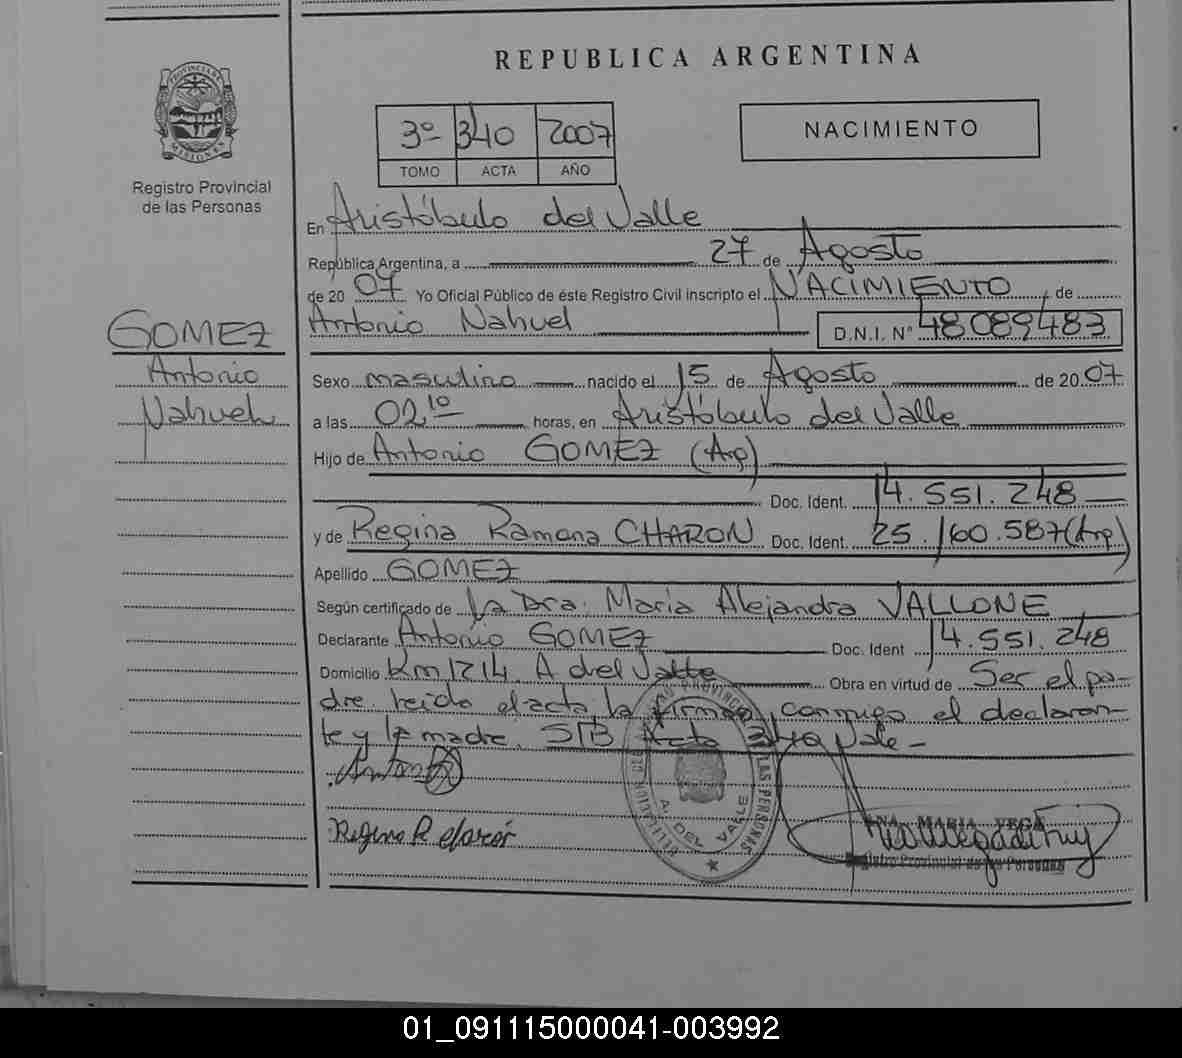 REPUBLICA ARGENTINA
PROVINCIA DE
MISIONES
Registro Provincial
de las Personas
3º 340 2007
TOMO ACTA AÑO
NACIMIENTO
En Aristóbulo del Valle
República Argentina, a 27 de Agosto
de 2007 Yo Oficial Público de éste Registro Civil inscripto el NACIMIENTO, de
Antonio Nahuel D.N.I. Nº 48089483
GOMEZ
Antonio
Nahuel
Sexo masculino nacido el 15 de Agosto de 2007
a las 02 10 horas, en Aristóbulo del Valle
Hijo de Antonio GOMEZ (Arg)
Doc. Ident. 14.551.248
y de Regina Ramona CHARON Doc. Ident. 25.160.587 (Arg.)
Apellido GOMEZ
Según certificado de La Dra. María Alejandra VALLONE
Declarante Antonio GOMEZ Doc. Ident 14.551.248
Domicilio Km 1214. A del Valle Obra en virtud de Ser el pa-
dre. leído el acta la firman conmigo el declaran-
te y la madre. S/B Acta 340 Vale-
Antonio
Regina R
ANA MARIA VEGA
Registro Provincial de las Personas
A. DEL VALLE
01_091115000041-003992